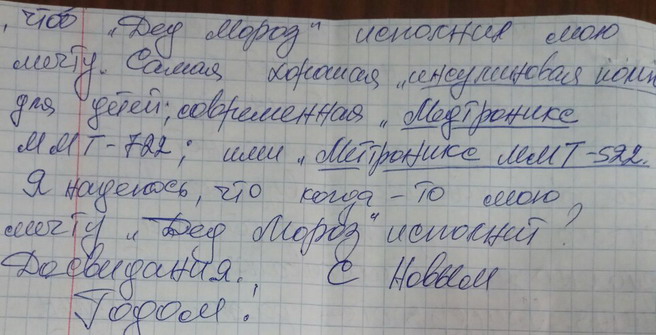 , чтоб „Дед Мороз" исполнил мою
мечту. Самая хорошая „инсулиновая помп
для детей; современная „Медтроникс
ММТ-722; или „Меттроникс ММТ-522.
Я надеюсь, что когда-то мою
мечту „Дед Мороз" исполнит?
Досвидания. С Новым
Годом!